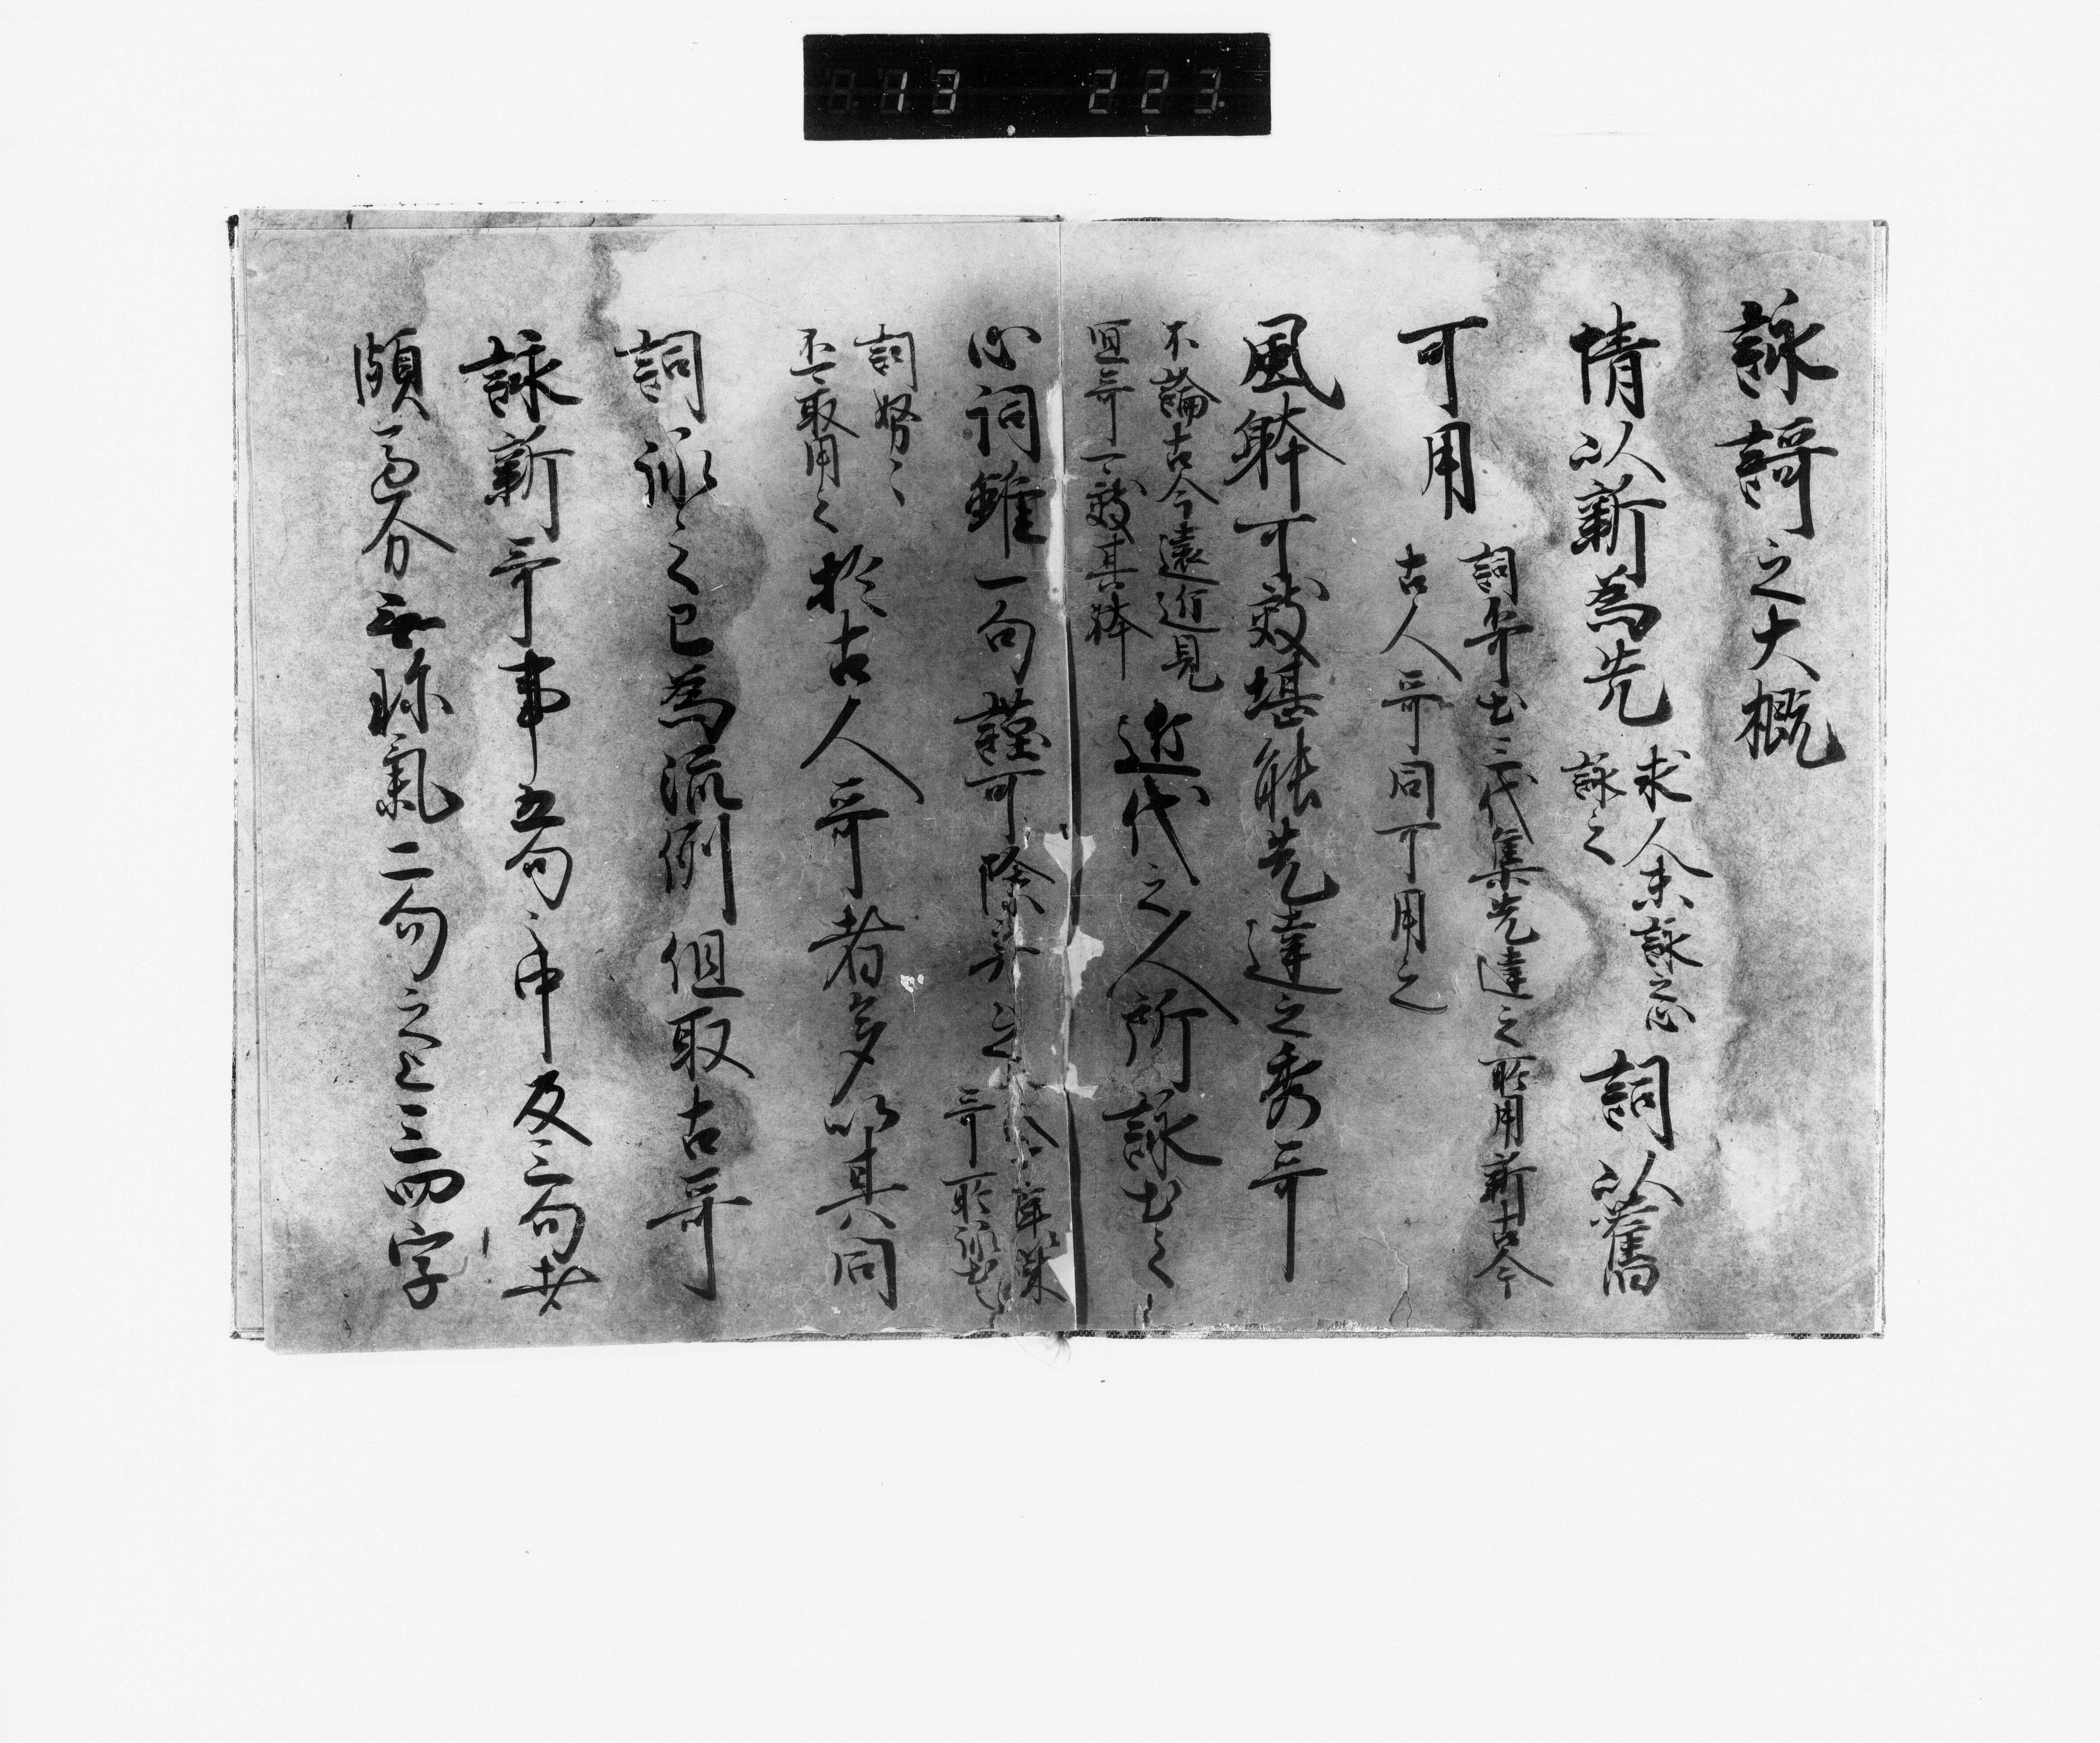 13 223
詠謌之大概
情以新為先
求人未詠之心
詠之
詞以舊
可用
詞不可出三代集先達之所用新古今
古人哥同可用之
風躰可效堪能先達之秀哥
不論古今遠近見
宜哥可效其躰
近代之人所詠出之
心詞雖一句謹可除弃之
哥所詠出之
詞努々
不可取用之
於古人哥者多以其同
詞詠之已為流例但取古哥
詠新哥事五句之中及三句者
頗過分無珍氣二句之上三四字